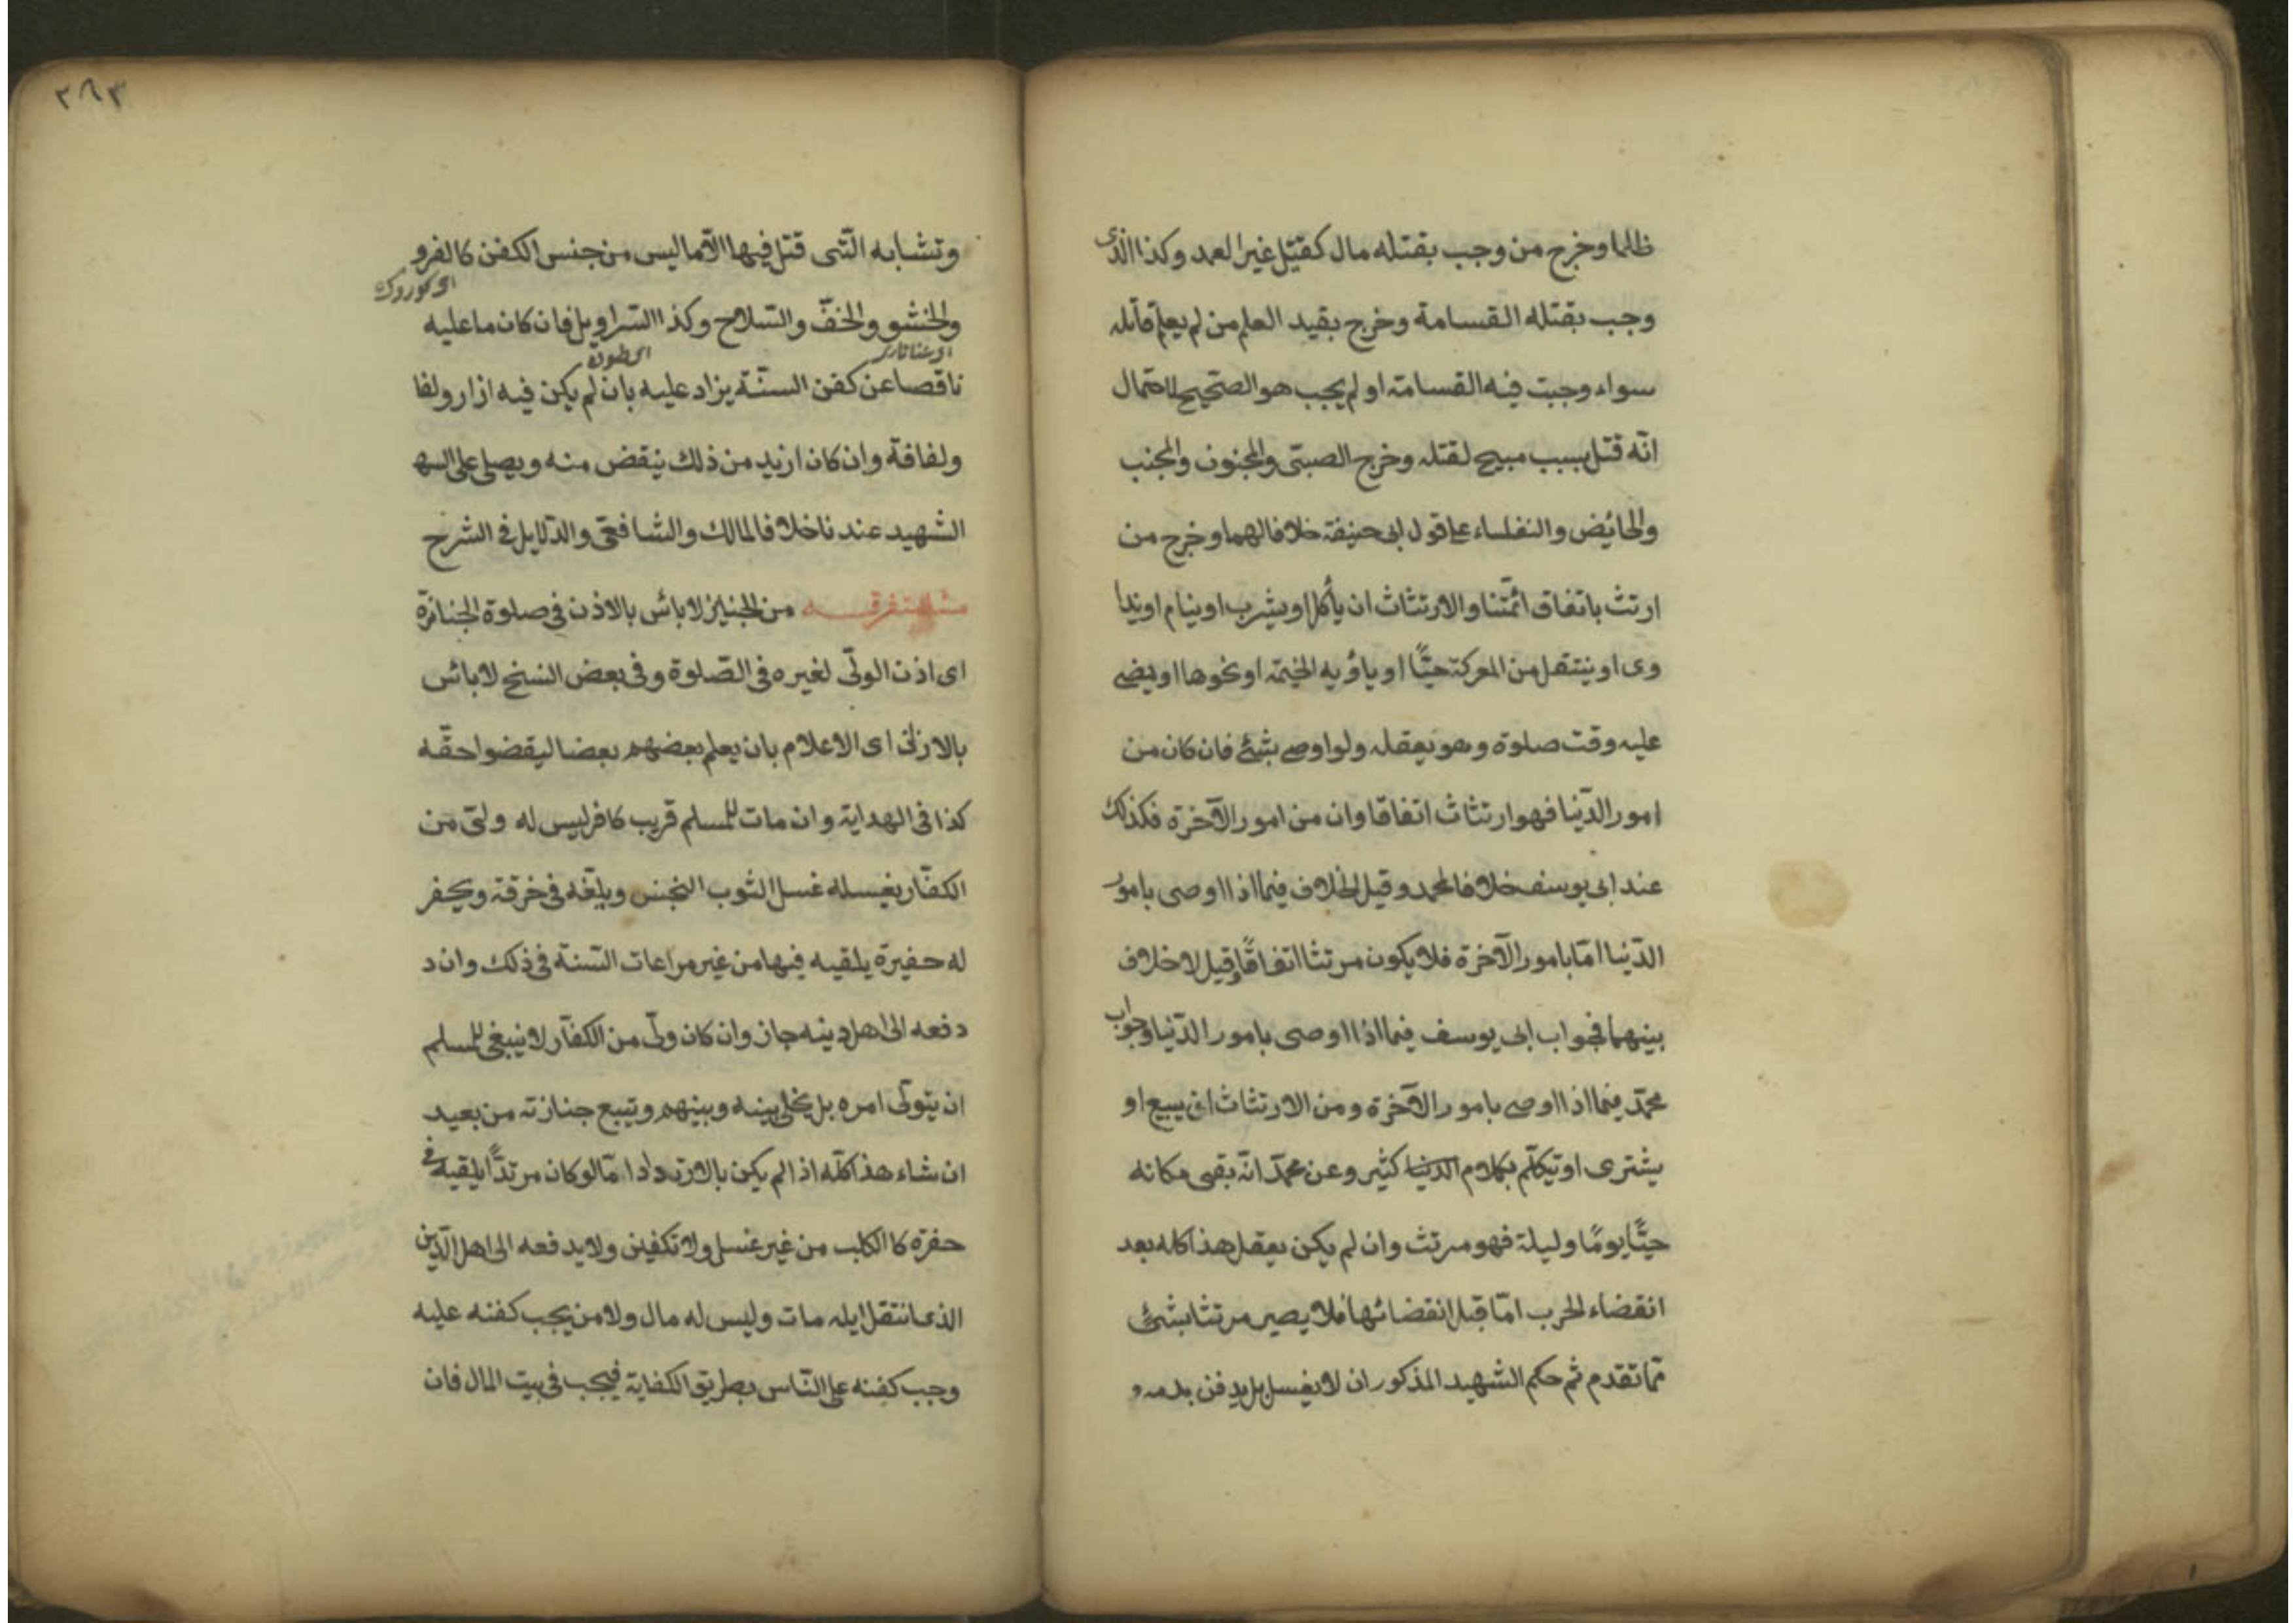 ظلما وخرج من وجب بقتله مال كقتيل غير العمد وكذا الذى
وجب بقتله القسامة وخرج بقيد العلم من لم يعلم قاتله
سواء وجبت فيه القسامة او لم يجب هو الصحيح لاحتمال
انّه قتل بسبب مبيح لقتله وخرج الصبّى والمجنون والجنب
والحائيض والنفساء على قول ابى حنيفة خلافا لهما وخرج من
ارتث باتفاق ائمّتنا والارتثاث ان يأكل او يشرب او ينام او يدا
وى او ينتقل من المعركة حيّاً او يأويه الخيمة او نحوها او يمضى
عليه وقت صلوة وهو يعقله ولو اوصى بشئ فان كان من
امور الدّنيا فهو ارتثاث اتفاقا وان من امور الآخرة فكذلك
عند ابى يوسف خلافا لمحمد وقيل الخلاف فيما اذا اوصى بامور
الدّنيا امّا بامور الآخرة فلا يكون مرتثا اتفاقًا وقيل لا خلاف
بينهما فجواب ابى يوسف فيما اذا اوصى بامور الدّنيا وجواب
محمّد فيما اذا اوصى بامور الآخرة ومن الارتثاث ان يبيع او
يشترى او تيكلّم بكلام الدنيا كثير وعن محمّد انّه بقى مكانه
حيًّا يومًا وليلة فهو مرتث وان لم يكن يعقل هذا كله بعد
انقضاء الحرب امّا قبل انقضائها فلا يصير مرتثا بشئ
ممّا تقدم ثم حكم الشهيد المذكور ان لا يغسل بل يدفن بدمه و
٢٦٣
وتشابه الّتى قتل فيها الّا ما ليس من جنس الكفن كالفرو
والحشو والخفّ والسّلاح وكذا السّراويل فان كان ما عليه
ناقصا عن كفن السنّة يزاد عليه بان لم يكن فيه ازار ولفا
ولفافة وان كان ازيد من ذلك ينقض منه ويصلى على الشه
الشهيد عندنا خلافا لمالك والشافعى والدّلايل فى الشرح
متفرقه من الجنايز لا بائس بالاذن فى صلوة الجنازة
اى اذن الولّى لغيره فى الصّلوة وفى بعض النسخ لا بائس
بالاذن اى الاعلام بان يعلم بعضهم بعضا ليقضوا حقّه
كذا فى الهداية وان مات للمسلم قريب كافر ليس له ولىّ من
الكفّار يغسله غسل الثوب النجس ويلفّه فى خرقة ويحفر
له حفيرة يلقيه فيها من غير مراعات السّنة فى ذلك وان د
دفعه الى اهل دينه جاز وان كان ولىّ من الكفّار لا ينبغى للمسلم
ان يتولّى امره بل يخلى بينه وبينهم ويتبع جنازته من بعيد
ان شاء هذا كلّه اذا لم يكن بالارتداد امّا لو كان مرتدًّا يلقيه فى
حفرة كا الكلب من غير غسل ولا تكفين ولا يدفعه الى اهل الّدين
الذى انتقل ايله مات وليس له مال ولا من يجب كفنه عليه
وجب كفنه على النّاس بطريق الكفاية فيجب فى بيت المال فان